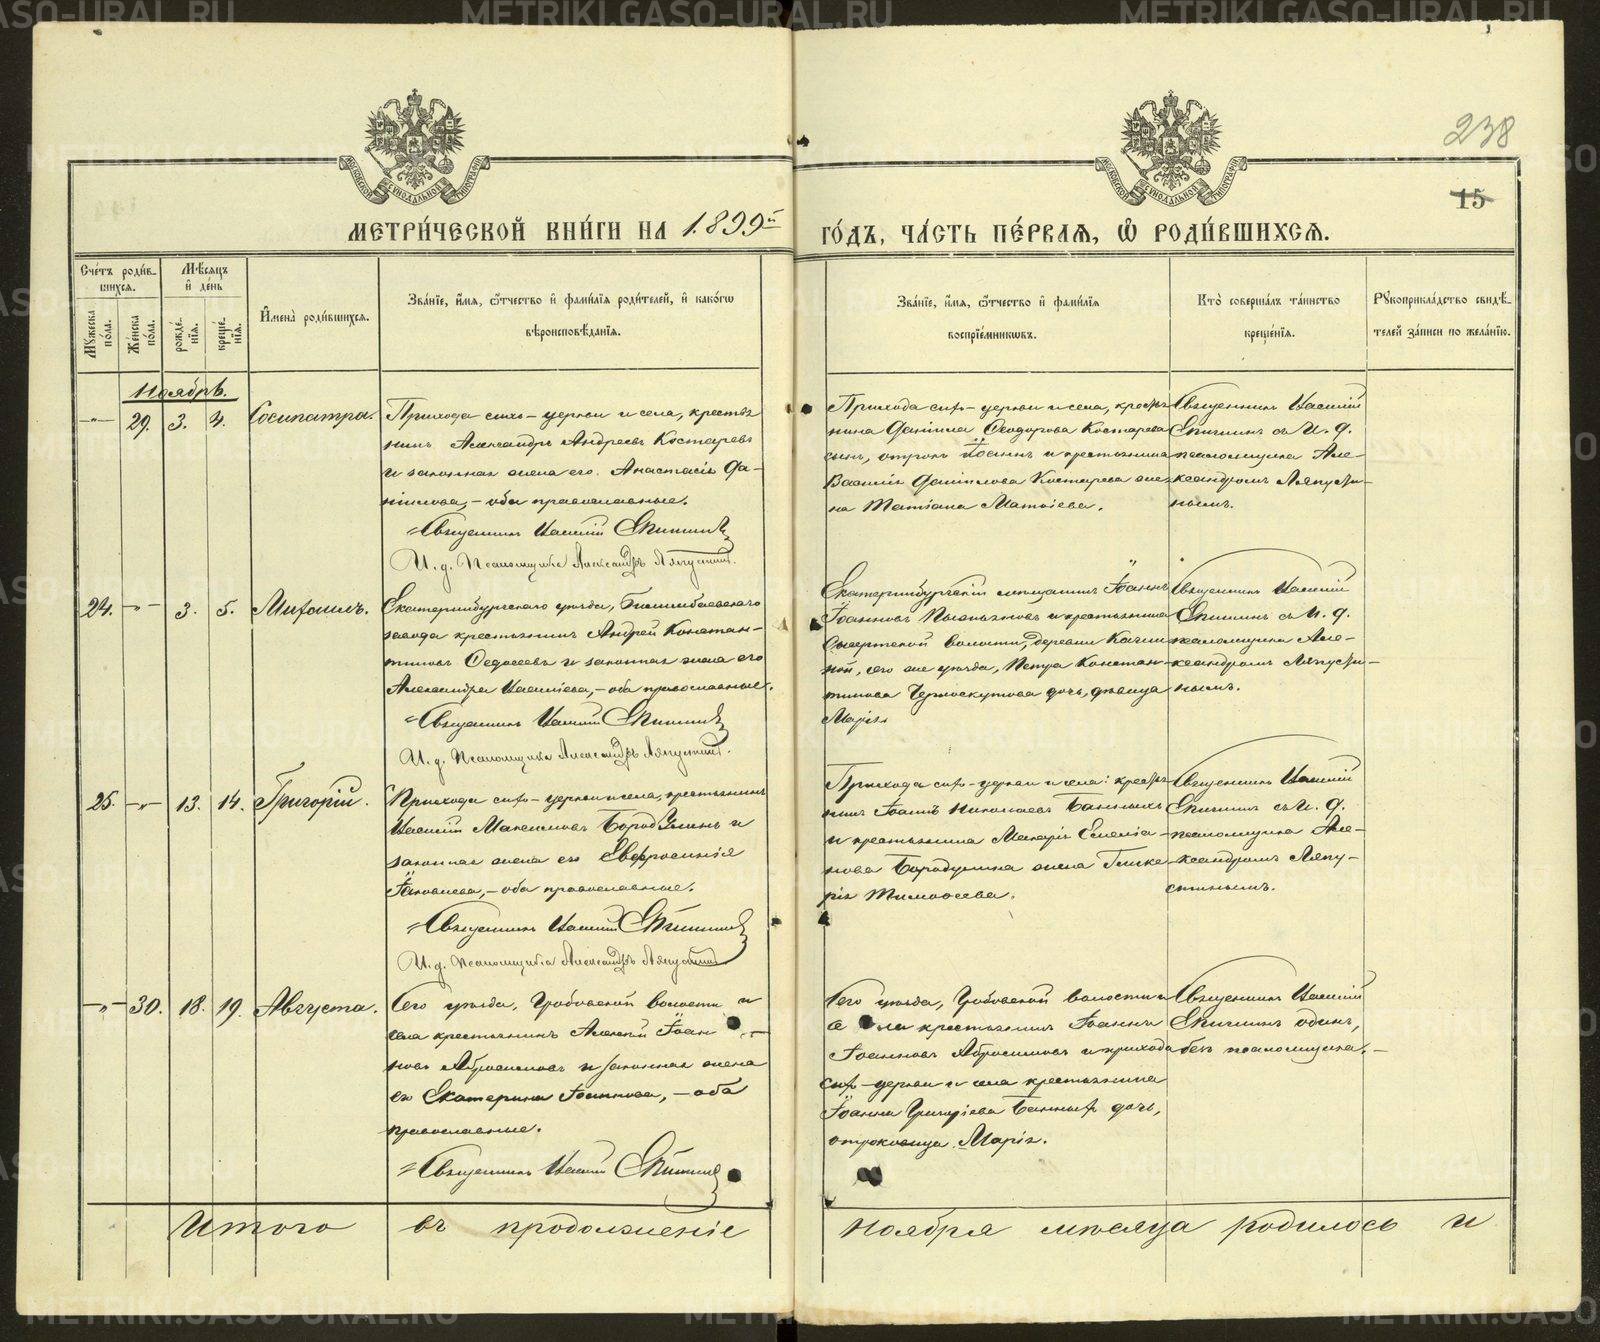 238
15
МЕТРИ́ЧЕСКОЙ КНИ́ГИ НА 1899й ГО́ДЪ, ЧА́СТЬ ПЕ́РВАЯ, Ѽ РОДИ́ВШИХСЯ.
Сче́тъ роди́в-
шихся.
Мѣ́сяцъ
и де́нь
Му́жеска по́ла.
Же́нска по́ла.
рожде́нія.
креще́нія.
Имена̀ роди́вшихся.
Зва́ніе, и́мя, ѻ҆́тчество и фами́лія роди́телей, и како́гѡ
вѣроисповѣ́данія.
Зва́ніе, и́мя, ѻ҆́тчество и фами́лія
воспріе́мниковъ.
Кто̀ соверша́лъ та́инство
креще́нія.
Рукоприкла́дство свидѣ́-
телей за́писи по жела́нію.
Ноябрь.
-"- 29. 3. 4. Сосипатра.
Прихода сихъ - церкви и села, крестья
нинъ Александръ Андреевъ Костаревъ
и законная жена его Анастасія Да-
ніилова, - оба православные.
Священникъ Василій
И. д. Псаломщика Александръ Ляпустинъ.
Прихода сихъ - церкви и села, крестья
нина Даніила Ѳеодорова Костарева
сынъ, отрокъ Іоаннъ и крестьянина
Василія Даніилова Костарева же-
на Татіана Матѳіева.
Священникъ Василій
съ И. д.
псаломщика Але-
ксандромъ Ляпусти-
нымъ.
24. -"- 3. 5. Михаилъ.
Екатеринбургскаго уѣзда, Билимбаевскаго
завода крестьянинъ Андрей Констан-
тиновъ Ѳедосеевъ и законная жена его
Александра Васильева, - оба православные.
Священникъ Василій
И. д. Псаломщика Александръ Ляпустинъ.
Екатеринбургскій мещанинъ Іоаннъ
Іоанновъ и крестьянина
Сысертской волости, деревни
ной, сего же уѣзда, Петра Констан-
тинова Черноскутова дочь, дѣвица
Марія.
Священникъ Василій
съ И. д.
псаломщика Але-
ксандромъ Ляпусти-
нымъ.
25. -"- 13. 14. Григорій.
Прихода сихъ - церкви и села, крестьянинъ
Василій Максимовъ Бородулинъ и
законная жена его Евфросинія
Іаковлева, - оба православные.
Священникъ Василій
И. д. Псаломщика Александръ Ляпустинъ.
Прихода сихъ - церкви и села: крестья
нинъ Іоаннъ Николаевъ Банныхъ
и крестьянина Макарія
нова Бородулина жена Глике-
рія Тимоѳеева.
Священникъ Василій
съ И. д.
псаломщика Але-
ксандромъ Ляпу-
стинымъ.
-"- 30. 18. 19. Августа.
Сего уѣзда, Гробовской волости и
села крестьянинъ Алексій Іоан-
новъ Абросимовъ и законная жена
его Екатерина Іоаннова, - оба
православные.
Священникъ Василій
Сего уѣзда, Гробовской волости и
села крестьянинъ Іоаннъ
Іоанновъ Абросимовъ и прихода
сихъ - церкви и села крестьянина
Іоанна Григорьева Банныхъ дочь,
отроковица Марія.
Священникъ Василій
одинъ,
безъ псаломщика.
Итого въ продолженіе ноября мѣсяца родилось и
METRIKI.GASO-URAL.RU